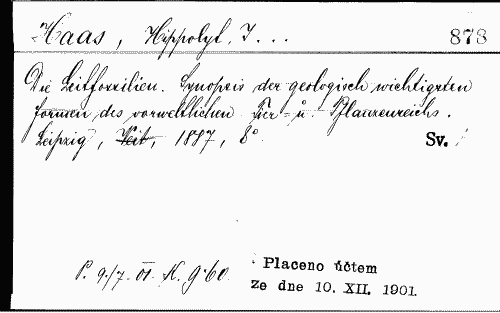 Haas, Hippolyt, J... 873
Die Leitfossilien. Synopsis der geologisch wichtigsten
formen des vorweltlichen Tier- u. Pflanzenreichs.
Leipzig, Veit, 1887, 8° Sv. 1
P. 9./7. 01. K. 9·60 Placeno účtem
ze dne 10. XII. 1901.